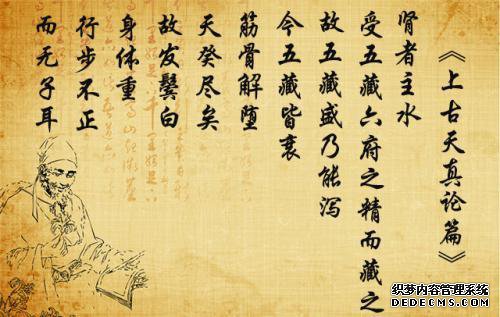 《上古天真论篇》
肾者主水
受五藏六府之精而藏之
故五藏盛乃能泻
今五藏皆衰
筋骨解堕
天癸尽矣
故发鬓白
身体重
行步不正
而无子耳
织梦内容管理系统
DEDECMS.COM